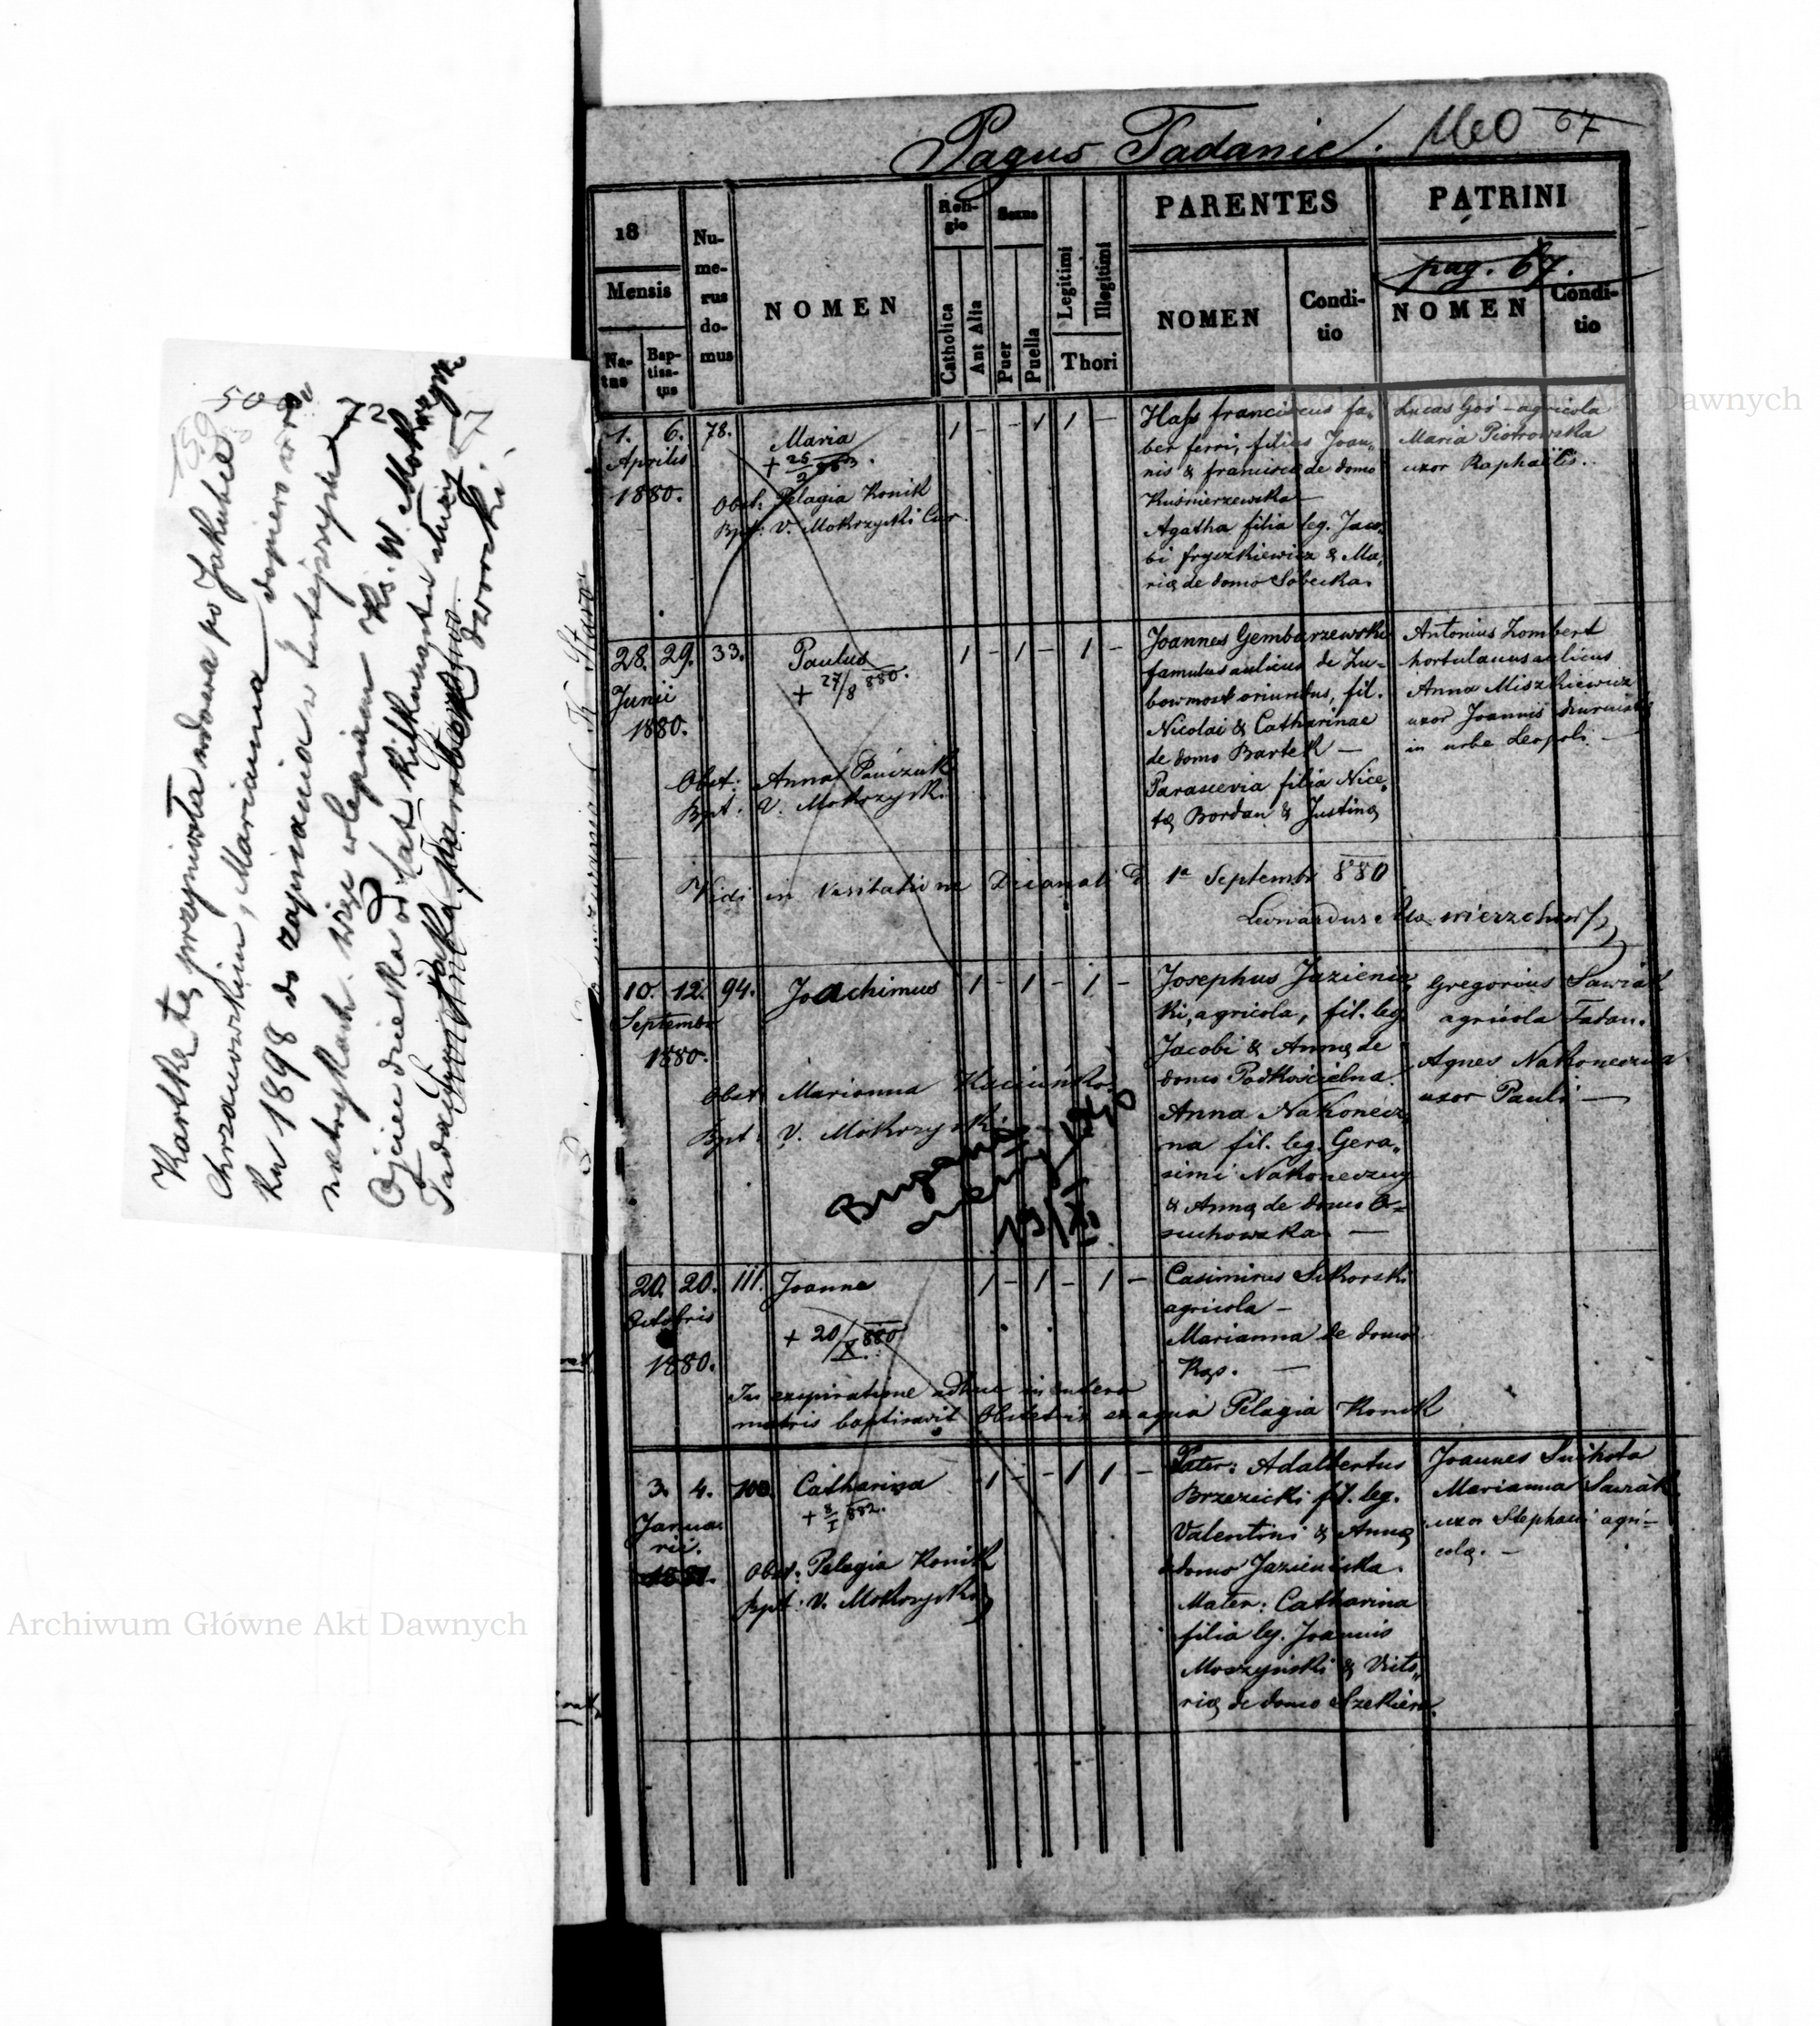 Pagus Tadanie. 160 67
18
Mensis
Na-
tus
Bap-
tisa-
tus
Nu-
me-
rus
do-
mus
NOMEN
Reli-
gio
Catholica
Aut Alia
Sexus
Puer
Puella
Legitimi
Illegitimi
Thori
PARENTES
NOMEN
Condi-
tio
PATRINI
pag. 67.
NOMEN
Condi-
tio
1. 6. 78.
Aprilis
1880.
Maria
Obst: Pelagia Konik
Bpt: V. Mokrzycki Cur.
1 - - 1 1 -
Hass franciscus fa,
ber ferri, filius Joan,
nis & francisca de domo
Kuśnierzewska —
Agatha filia leg. Jaco,
bi fryczkiewicz & Ma,
ria de domo Sobecka.
Lucas Gos - agricola
Maria Piotrowska
uxor Raphaelis.
28. 29. 33.
Junii
1880.
Paulus
+ 27/8 880.
Obst: Anna Pańczuk
Bpt. V. Mokrzycki
1 - 1 - 1 -
Joannes Gembarzewski
famulus aulicus de Zu-
bowmost oriundus, fil.
Nicolai & Catharinae
de domo Bartek —
Parascevia filia Nice,
ta Bordan & Justina
Antonius Lombert
hortulanus aulicus
Anna Miszkiewicz
uxor Joannis
in urbe Leopoli. —
Vidi in Visitatione Decanali D. 1a Septembr 880
Leonardus
10. 12. 94.
Septembr
1880.
Joachimus
Obst: Marianna
Bpt: V. Mokrzycki
1 - 1 - 1 -
Josephus Jazienic
ki, agricola, fil. leg
Jacobi & Anna de
domo Podkościelna.
Anna Nakonecz,
na fil. leg. Gera,
simi Nakoneczny
& Anna de domo O-
suchowska. —
Gregorius Sawiak
agricola Tadan.
Agnes Nakoneczna
uxor Pauli —
19/XI
20. 20. 111.
Octobris
1880.
Joannes
+ 20/X 880
1 - 1 - 1 -
Casimirus Sikorski
agricola —
Marianna de domo
Kap. —
In exspiratione adhuc in utero
matris baptisavit Obstetrix ex aqua Pelagia Konik
3. 4. 100.
Janua
rii.
1881.
Catharina
+ 8/I 882.
Obst: Pelagia Konik
Bpt: V. Mokrzycki
1 - - 1 1 -
Pater: Adalbertus
Brzezicki fil. leg.
Valentini & Anna
domo Jazienicka.
Mater: Catharina
filia leg. Joannis
Moszyński & Victo,
ria de domo Szekiera.
Joannes Suchota
Marianna Sawiak
uxor Stephani agri-
cola. —
50
72
Kartkę tę przyniosła wdowa po Jakubie
Chrzanowskim, Marianna dopiero w ro
ku 1898 do zapisania w tutejszych
metrykach. Więc wlepiam Ks. W. Mokrzycki
Ojciec dziecka od lat kilkunastu służy w
Tadaniu jako parobek dworski.
Archiwum Główne Akt Dawnych
Archiwum Główne Akt Dawnych